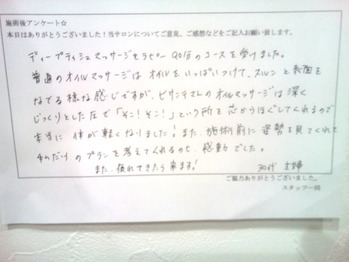 施術後アンケート☆
本日はありがとうございました！当サロンについてご意見、ご感想などをご記入お願い致します。
ディープティシュマッサージセラピー90分のコースを受けました。
普通のオイルマッサージはオイルをいっぱいつけて、スルンと表面を
なでる様な感じですが、ビサンテさんのオイルマッサージは深く
じっくりとした圧で「そこ！そこ！」という所を芯からほぐしてくれるので
本当に体が軽くなりました！また、施術前に姿勢を見てくれて
それだけのプランを考えてくれるのも、感動でした。
また、疲れてきたら来ます！ 30代 主婦
ご協力ありがとうございました。
スタッフ一同